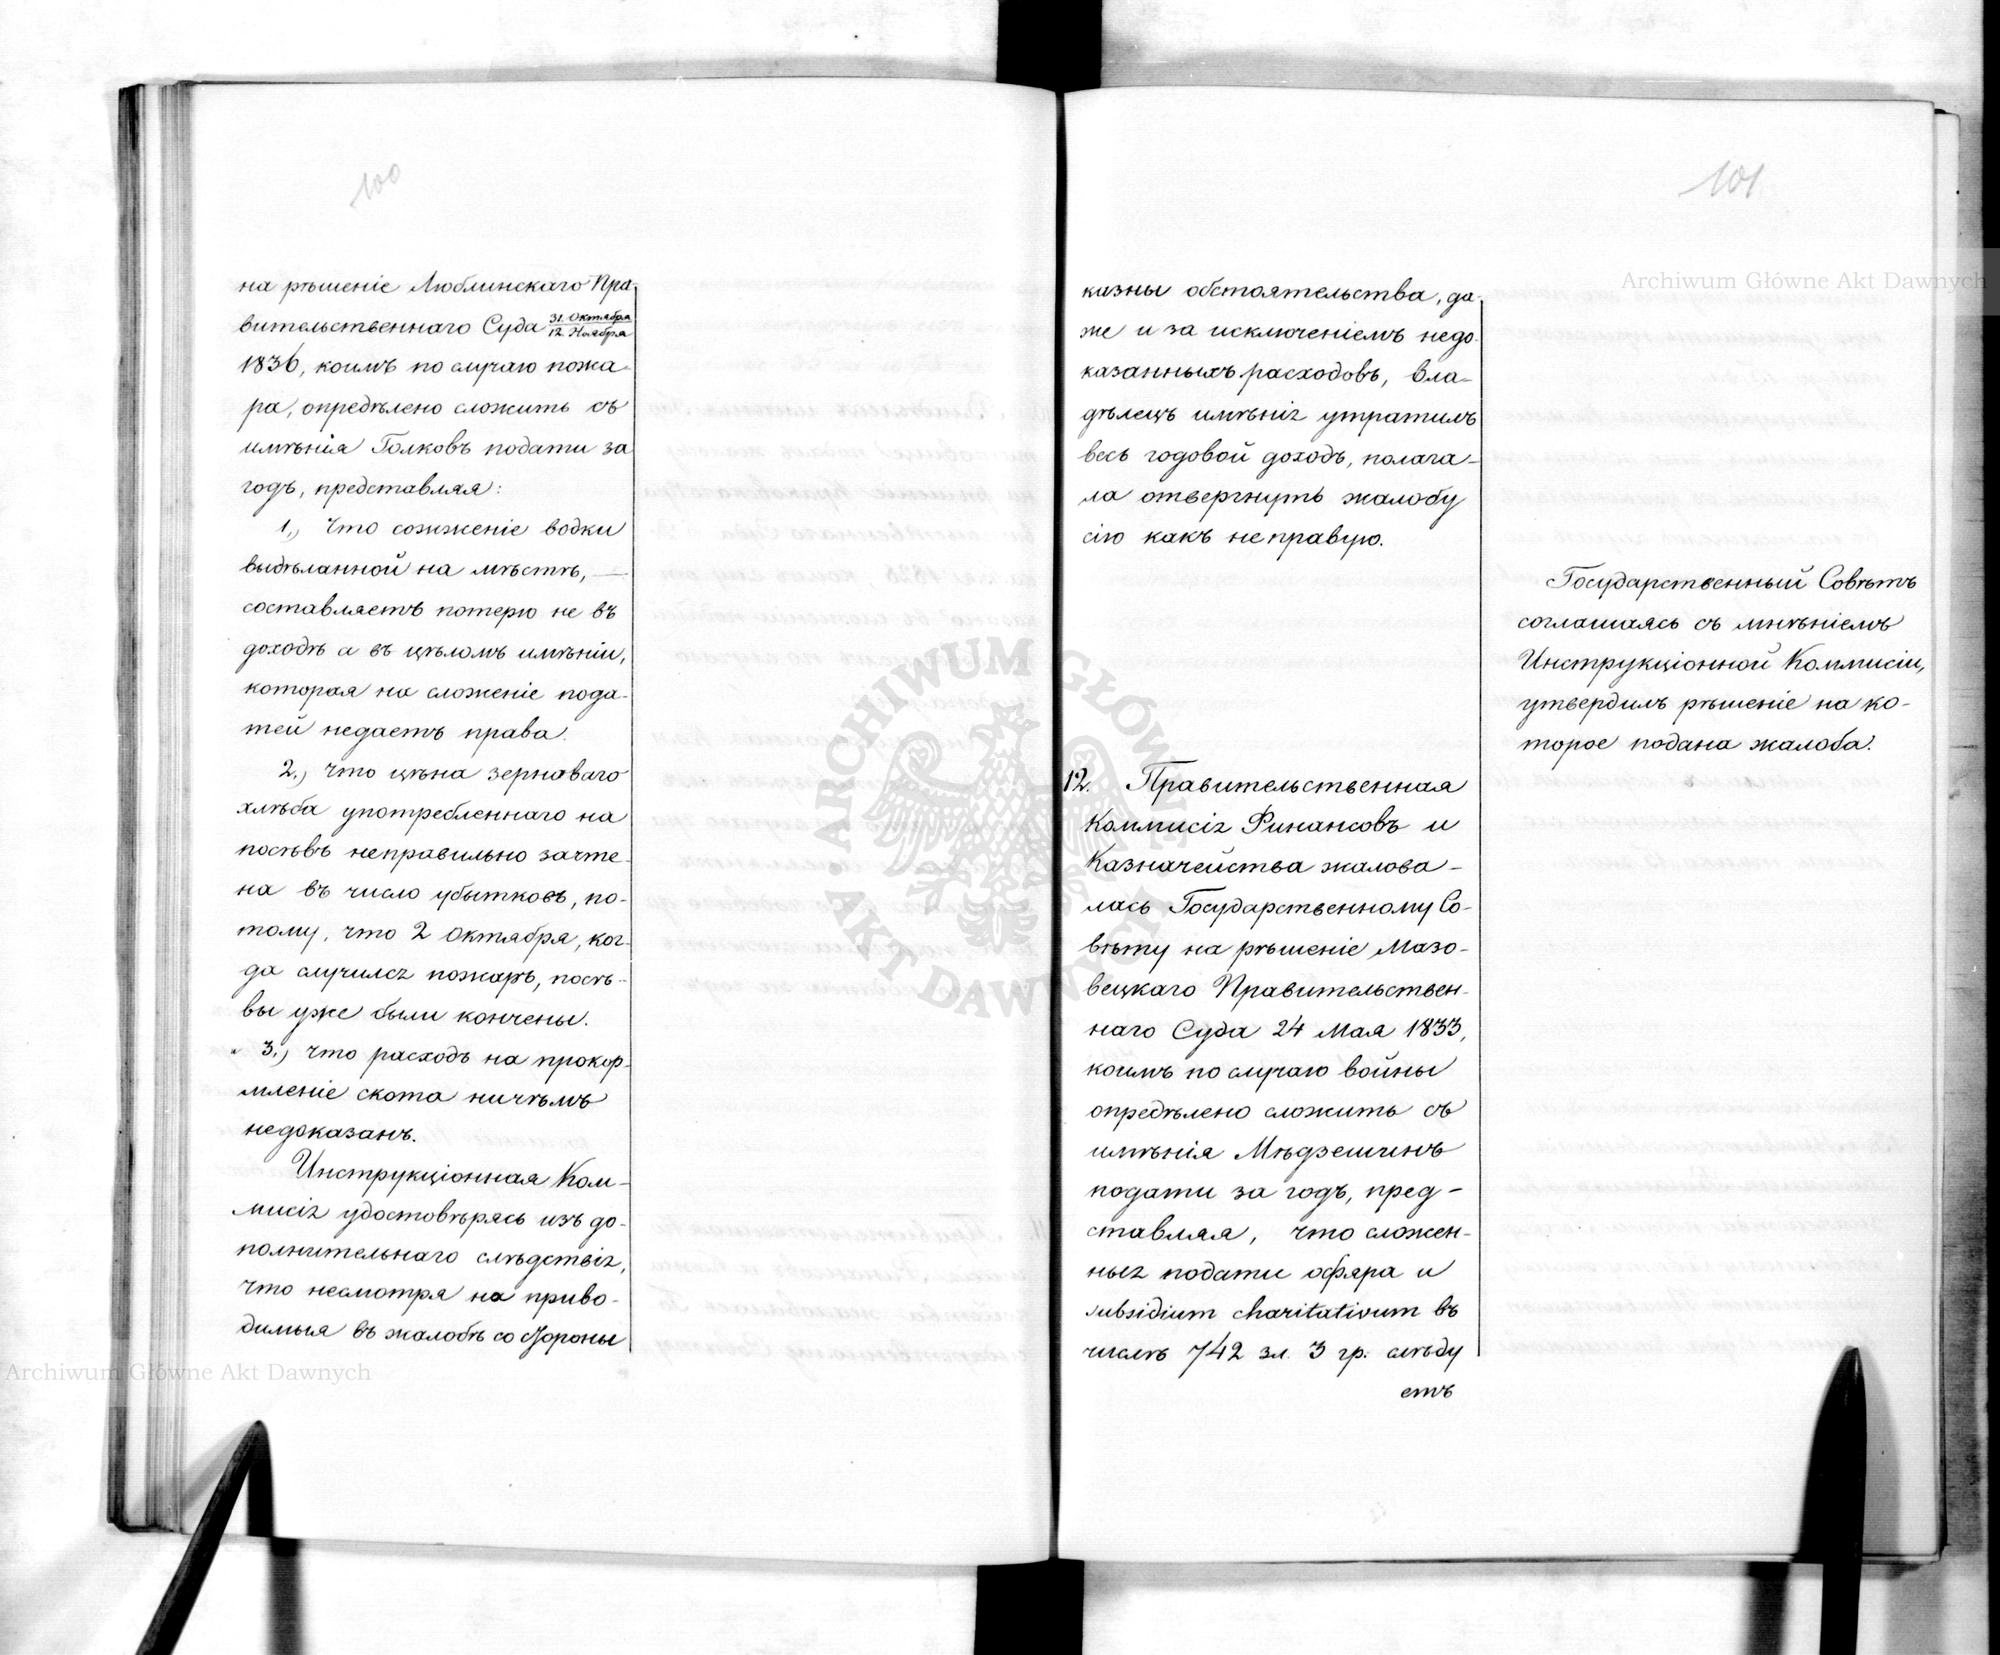 100
на рѣшеніе Люблинскаго Пра-
вительственнаго Суда 31. Октября / 12. Ноября
1836, коимъ по случаю пожа-
ра, опредѣлено сложить съ
имѣнія Голковъ подати за
годъ, представляя:
1., Что сожженіе водки
выдѣланной на мѣстѣ, —
составляетъ потерю не въ
доходѣ а въ цѣломъ имѣніи,
которая на сложеніе пода-
тей недаетъ права.
2., Что цѣна зерноваго
хлѣба употребленнаго на
посѣвъ неправильно зачте-
на въ число убытковъ, по-
тому, что 2 Октября, ког-
да случился пожаръ, посѣ-
вы уже были кончены.
3., Что расходъ на прокор-
мленіе скота ничѣмъ
недоказанъ.
Инструкціонная Ком-
мисія удостовѣрясь изъ до-
полнительнаго слѣдствія,
что несмотря на приво-
димыя въ жалобѣ со стороны
101
казны обстоятельства, да-
же и за исключеніемъ недо-
казанныхъ расходовъ, вла-
дѣлецъ имѣнія утратилъ
весь годовой доходъ, полага-
ла отвергнуть жалобу
сію какъ неправую.
Государственный Совѣтъ
соглашаясь съ мнѣніемъ
Инструкціонной Коммисіи,
утвердилъ рѣшеніе на ко-
торое подана жалоба.
12. Правительственная
Коммисія Финансовъ и
Казначейства жалова-
лась Государственному Со-
вѣту на рѣшеніе Мазо-
вецкаго Правительствен-
наго Суда 24 Мая 1833,
коимъ по случаю войны
опредѣлено сложить съ
имѣнія Мѣдзешинъ
подати за годъ, пред-
ставляя, что сложен-
ныя подати офяра и
subsidium charitativum въ
числѣ 742 зл. 3 гр. слѣду
етъ
Archiwum Główne Akt Dawnych
Archiwum Główne Akt Dawnych
ARCHIWUM GŁÓWNE AKT DAWNYCH